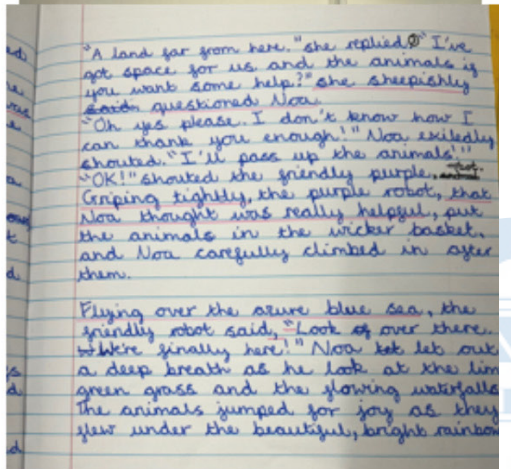 "A land far from here." she replied. "I've
got space for us and the animals if
you want some help?" she sheepishly
said questioned Noa.
"Oh yes please. I don't know how I
can thank you enough!" Noa exiledly
shouted. "I'll pass up the animals!"
"OK!" shouted the friendly purple,
Griping tightly, the purple robot, that
Noa thought was really helpful, put
the animals in the wicker basket.
and Noa carefully climbed in after
them.
Flying over the azure blue sea, the
friendly robot said, "Look of over there.
We're finally here!" Noa let out
a deep breath as he look at the lim
green grass and the flowing waterfalls
The animals jumped for joy as they
flew under the beautiful, bright rainbow